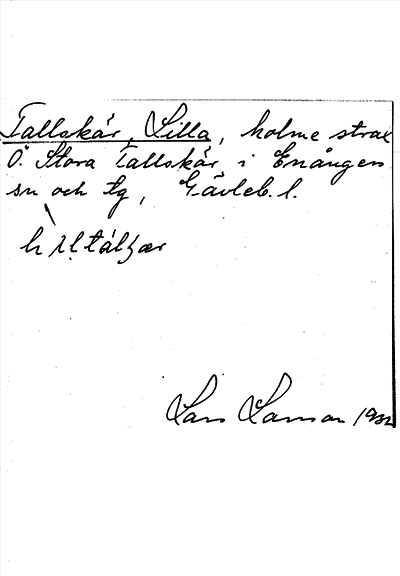 Tallskär, Lilla, holme strax
Ö. Stora Tallskär i Enången
sn och tg, Gävleb. l.
Lars Larsson 1932